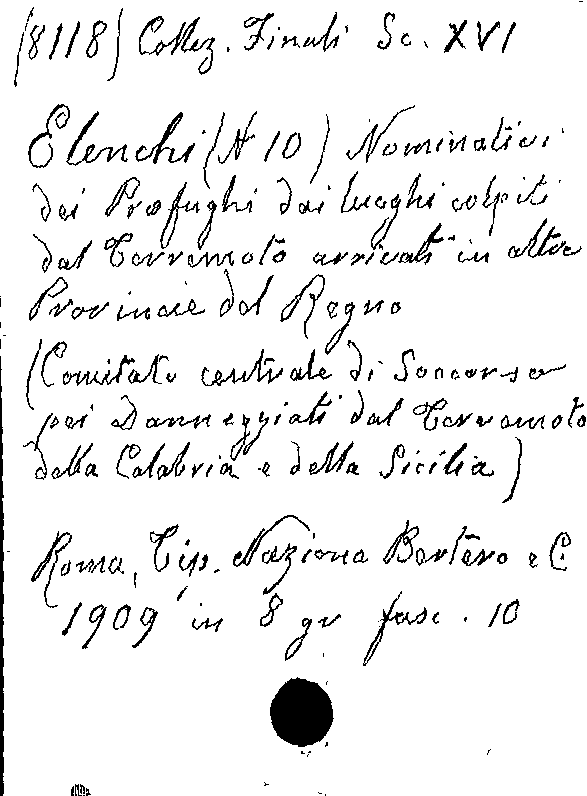 (8118) Collez. Finali Sc. XVI
Elenchi (N 10) Nominativi
dei Profughi dai luoghi colpiti
dal Terremoto arrivati in altre
Provincie del Regno
(Comitato centrale di Soccorso
pei Danneggiati dal Terremoto
della Calabria e della Sicilia)
Roma, Tip. Naziona Bertero e C.
1909 in 8 gr fasc. 10